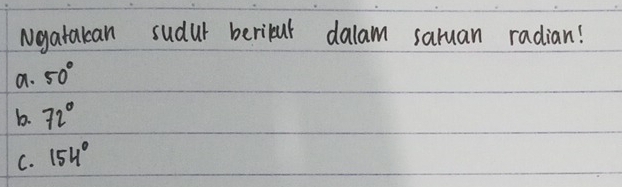 Ngatakan sudut berikut dalam satuan radian!
a. 50°
b. 72°
c. 154°